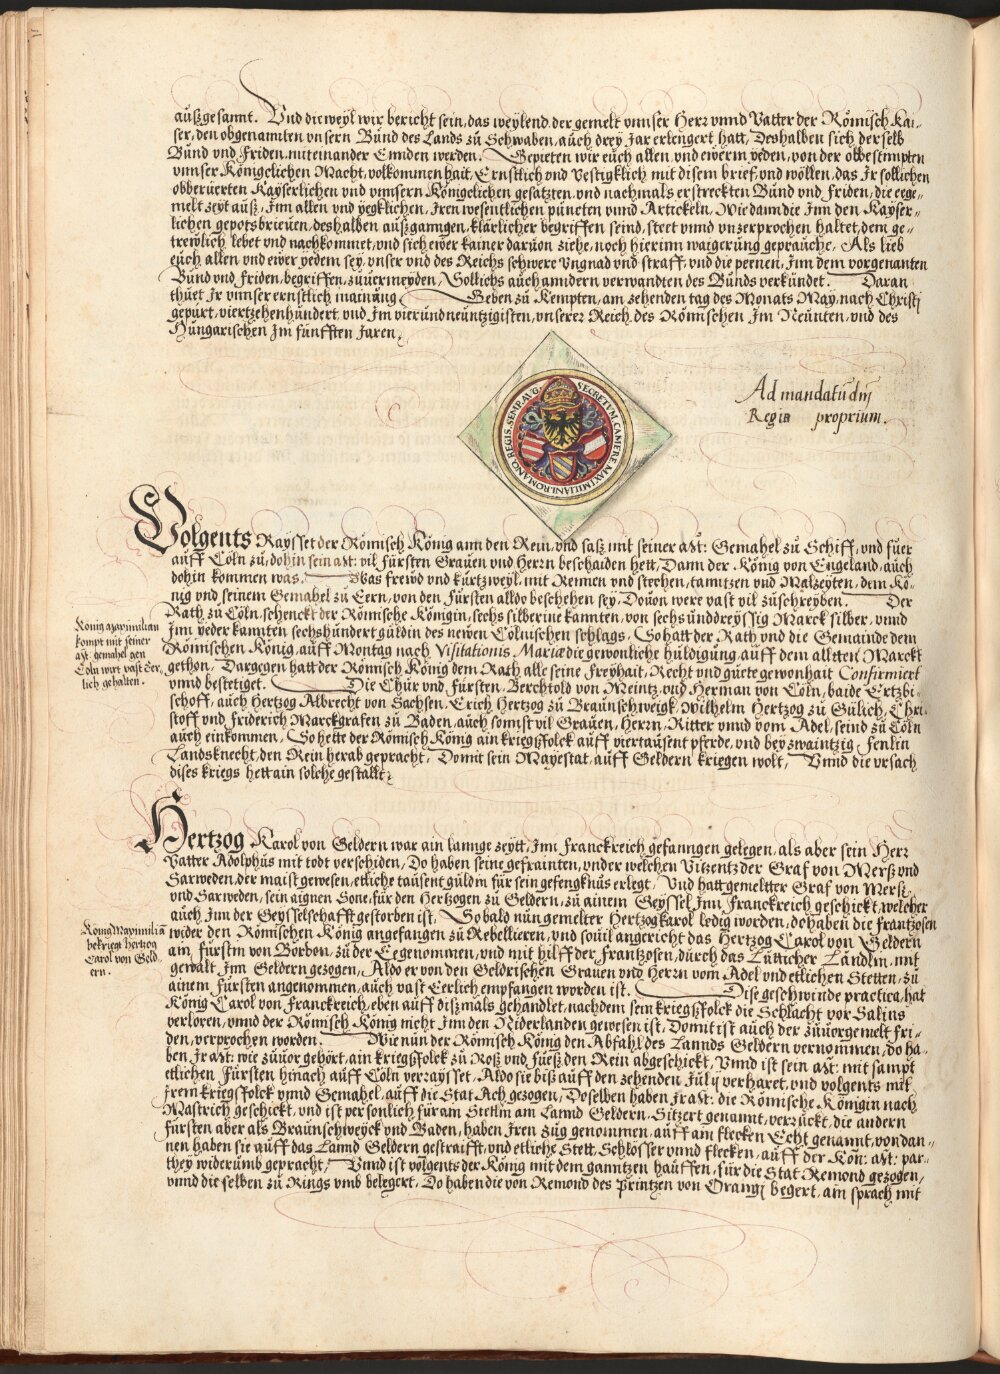 außgesannt. Vnd dieweyl wir bericht sein, das weylend, der gemelt vnnser Herr vnnd Vatter der Römisch Kai-
ser, den obgenannten vnsern Bund des Lands zu Schwaben, auch drey Jar erlengert hatt, Deshalben sich der selb
Bund vnd Friden miteinander Ennden werden. Gepieten wir euch allen, vnd ewerm yeden, von der obbestimpten
vnnser Königclichen Macht, volkommenhait, Ernstlich vnd Vestigklich mit disem brief, vnd wöllen, das Jr sollichen
obberuerten Kayserlichen vnd vnnsern Königclichen gesatzten, vnd nachmals erstreckten Bünd vnd Friden, die eege-
melt zeyt auß, Jnn allen vnd yegklichen, Jren wesentlichen puncten vnnd Artickeln, Wie dann die Jnn den Kayser-
lichen gepotsbrieuen, deshalben außgangen, klärlicher begriffen seind, steet vnnd vnzerprochen haltet, dem ge-
trewlich lebet vnd nachkommet, vnd sich ewer kainer daruon ziehe, noch hierinn waigerung geprauche, Als lieb
euch allen vnd ewer yedem sey, vnser vnd des Reichs schwere Vngnad vnd straff, vnd die peenen, Jnn dem vorgenanten
Bund vnd Friden, begriffen, zuuermeyden, Sollichs auch anndern verwandten des Bunds verkündet. Daran
thüet Jr vnnser ernstlich mainung. Geben zu Kempten, am zehenden tag des Monats May, nach Christj
gepurt, viertzehenhundert, vnd Jm vierundneuntzigisten, vnserer Reich, des Römischen Jm Neunten, vnd des
Hungarischen Jm fünfften Jaren.
SECRETVM. CAMERE. MAXIMILIANI. ROMANO. REGIS. SEMP. AVG.
Ad mandatu dnj
Regis proprium.
Volgents Raysset der Römisch König ann den Rein, vnd saß mit seiner Mt: Gemahel zu Schiff, vnd fuer
auff Cöln zu, dohin sein Mt: vil Fürsten Grauen vnd Herrn beschaiden hett, Dann der König von Engeland, auch
dohin kommen was. Was frewd vnd kurtzweyl, mit Rennen vnd stechen, tanntzen vnd Malzeyten, dem Kö-
nig vnd seinem Gemahel zu Eern, von den Fürsten alldo beschehen sey, Douon were vast vil zuschreyben. Der
Rath zu Cöln, schenckt der Römische Königin, sechs silberine kannten, von sechsunddreyssig Marck silber, vnnd
Jnn yeder kannten sechshundert guldin des newen Cölnischen schlags. So hatt der Rath vnd die Gemainde dem
Römischen König, auff Montag nach Visitationis Mariæ die gewonliche huldigung, auff dem alltten Marckt
gethon, Dargegen hatt der Römisch König dem Rath alle seine Freyhait, Recht vnd guete gewonhait Confirmiert
vnnd bestetiget. Die Chur vnd Fürsten, Berchtold von Meintz, vnd Herman von Cöln, baide Ertzbi-
schoff, auch Hertzog Albrecht von Sachsen, Erich Hertzog zu Braunschweigk, Wilhelm Hertzog zu Gülich, Chri-
stoff vnd Friderich Marckgrafen zu Baden, auch sonnst vil Grauen, Herrn, Ritter vnnd vom Adel, seind zu Cöln
auch einkommen. So hette der Römisch König ain kriegßfolck auff viertausent pferde, vnd bey zwaintzig Fenlin
Landsknecht, den Rein herab gepracht, Domit sein Mayestat, auff Geldern kriegen wolt, Vnnd die vrsach
dises kriegs hett ain solche gestallt.
König Maximilian
kompt mit seiner
Mt. gemahel gen
Cöln wirt vast Eer-
lich gehalten.
Hertzog Karol von Geldern war ain lannge zeytt, Jnn Franckreich gefanngen gelegen, als aber sein Herr
Vatter Adolphus mit todt verschiden, Do haben seine gefrainten, vnder welchen Vitzentz der Graf von Merß vnd
Sarweden, der maist gewesen, ettliche tausent guldin für sein gefengknus erlegt, Vnd hatt gemeltter Graf von Merß,
vnd Sarweden, sein aignen Sone, für den Hertzogen zu Geldern, zu ainem Geyssel Jnn Franckreich geschickt, welcher
auch Jnn der Geysselschafft gestorben ist. So bald nun gemelter Hertzog Karol ledig worden, do haben die Frantzosen
wider den Römischen König angefangen zu Rebellieren, vnd souil angericht das Hertzog Carol von Geldern
am, fürstin von Borbon, zu der Eegenommen, vnd mit hilff der Frantzosen, durch das Lütticher Ländlin, mit
gewalt Jnn Geldern gezogen, Aldo er von den Geldrischen Grauen vnd Herrn vom Adel vnd ettlichen Stetten, zu
ainem Fürsten angenommen, auch vast Eerlich empfangen worden ist. Dise geschwinde practica, hat
König Carol von Franckreich, eben auff dißmals gehandlet, nachdem sein kriegßfolck die Schlacht vor Salins
verloren, vnnd der Römisch König nicht Jnn den Niderlanden gewesen ist, Domit ist auch der zuuorgemelt fri-
den, verprochen worden. Wie nun der Römisch König den Abfahl des Lannds Geldern vernommen, do ha-
ben Jr Mt: wie zuuor gehört, ain kriegßfolck zu Roß vnd Fueß den Rein abgeschickt, Vnnd ist sein Mt: mit sampt
ettlichen Fürsten hinach auff Cöln verraysset, Aldo sie biß auff den zehenden Julij verharet, vnd volgents mit
Jrem kriegßfolck vnnd Gemahel, auff die Stat Ach gezogen, Doselben haben Jr Mt: die Römische Königin nach
Mastrich geschickt, vnd ist personlich für am Stettlin am Lannd Geldern, Sitzert genannt, verruckt, die andern
fürsten aber als Braunschweyck vnd Baden, haben Jren zug genommen, auff ain flecken Echt genannt, von dan-
nen haben sie auff das Lannd Geldern gestraifft, vnd ettliche Stett, Schlösser vnnd flecken, auff der Kön: Mt: par-
they widerumb gepracht, Vnnd ist volgents der König mit dem ganntzen hauffen, für die Stat Remond gezogen,
vnnd die selben zu Rings vmb belegert, Do haben die von Remond des Printzen von Orangj begert, ain sprach mit
König Maximilian
bekriegt hertzog
Carol von Geld-
ern.